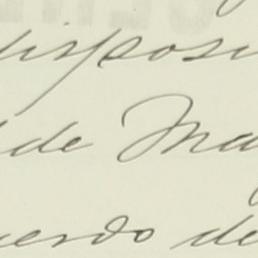 disposi
de Ma
uerdo de